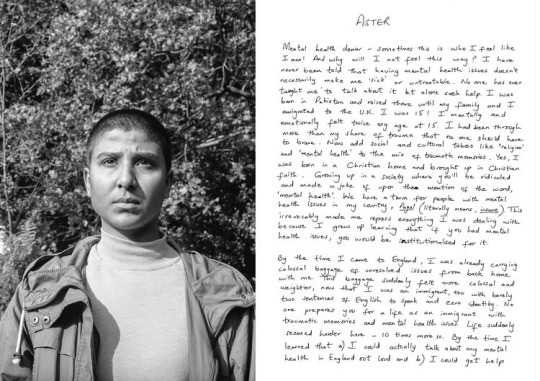 ASTER
Mental health denier – sometimes this is who I feel like
I am! And why will I not feel this way? I have
never been told that having mental health issues doesn't
necessarily make me 'sick' or untreatable. No one has ever
taught me to talk about it let alone seek help. I was
born in Pakistan and raised there until my family and I
emigrated to the U.K. I was 15! I mentally and
emotionally felt twice my age at 15. I had been through
more than my share of trauma that no one should have
to brave. Now add social and cultural taboos like 'religion'
and 'mental health' to the mix of traumatic memories. Yes, I
was born in a Christian home and brought up in Christian
faith. Growing up in a society where you'll be ridiculed
and made a joke of upon the mention of the word,
'mental health'. We have a term for people with mental
health issues in my country; (literally means, ). This
irrevocably made me repress everything I was dealing with
because I grew up learning that if you had mental
health issues, you would be institutionalised for it.
By the time I came to England, I was already carrying
colossal baggage of unresolved issues from back home
with me. This baggage suddenly felt more colossal and
weightier, now that I was an immigrant, too with barely
two sentences of English to speak and zero identity. No
one prepares you for a life as an immigrant with
traumatic memories and mental health issues. Life suddenly
seemed harder here – 10 times more so. By the time I
learned that a) I could actually talk about my mental
health in England out loud and b) I could get help